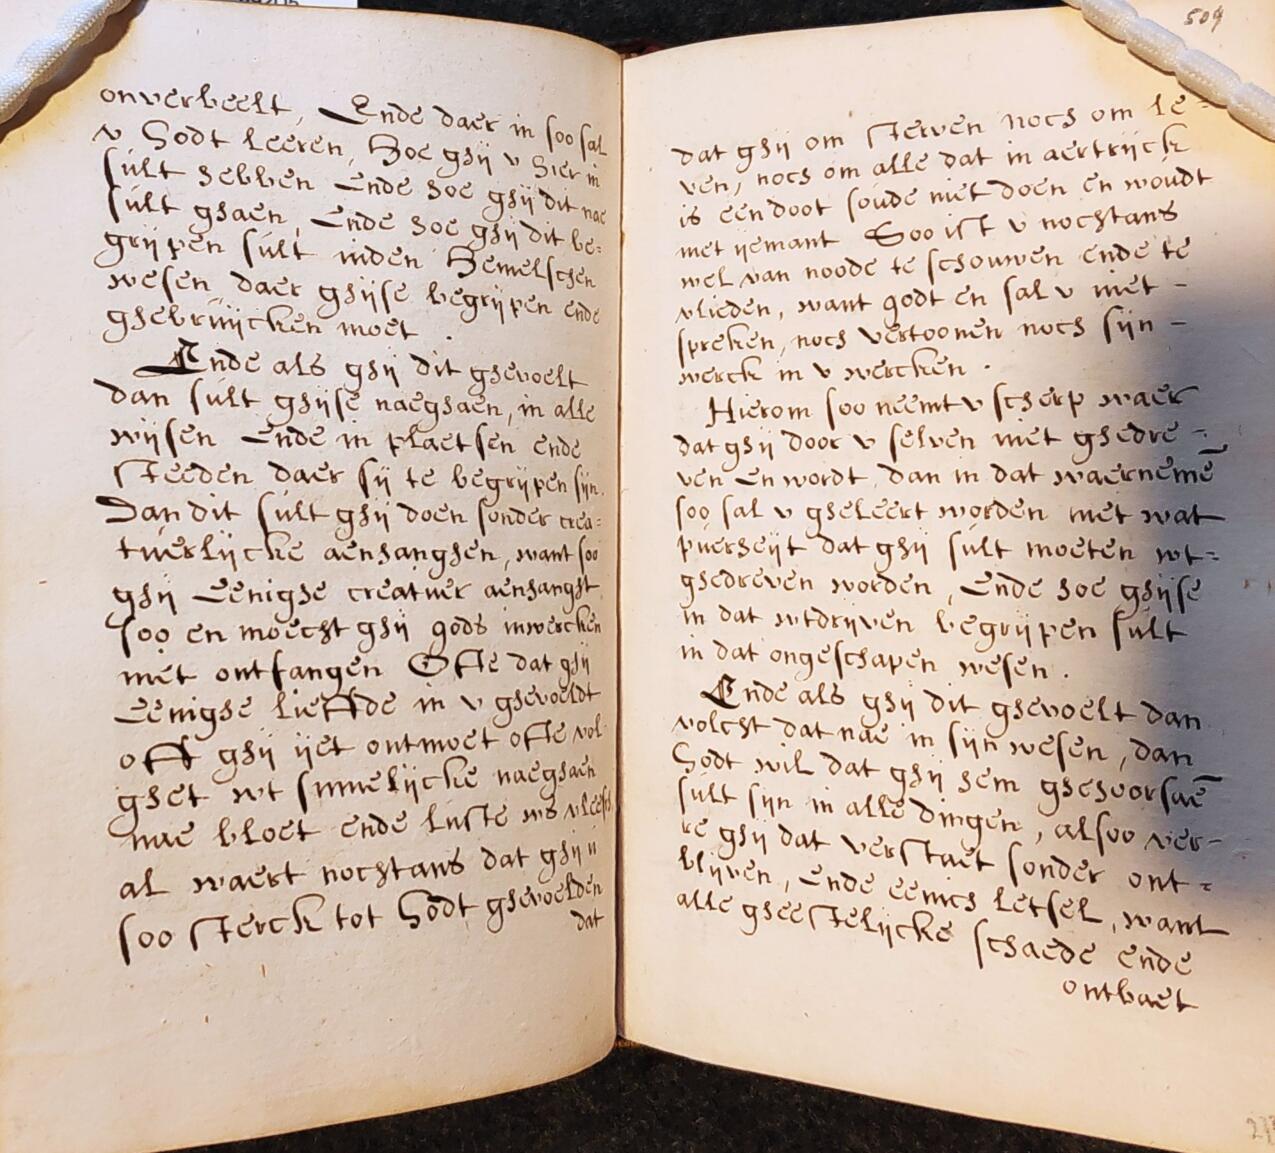 onverbeelt, Ende daer in soo sal
v Godt leeren, Hoe ghij v hier in
sult hebben Ende hoe ghij dit nae
sult ghaen, Ende hoe ghij dit be=
grijpen sult inden Hemelschen
wesen daer ghijse begrijpen ende
ghebruijcken moet
Ende als ghij dit ghevoelt
dan sult ghijse naeghaen, in alle
wijsen Ende in plaetsen ende
steeden daer sij te begrijpen sijn.
Dan dit sult ghij doen sonder crea=
tuerlijcke aenhanghen, want soo
ghij Eenighe creatuer aenhangst
soo en moecht ghij gods inwercken
niet ontfangen Ofte dat ghij
Eenighe lieffde in v ghevoeldt
oft ghij ijet ontmoet ofte vol
ghet wt sinnelijcke naeghaen
nae bloet ende luste ws vleesch
al waert nochtans dat ghij u
soo sterck tot Godt ghevoelden
dat
509
dat ghij om sterven noch om le=
ven, noch om alle dat in aertrijck
is een doot soude niet doen en woudt
met ijemant Soo ist v nochtans
wel van noode te schouwen ende te
vlieden, want godt en sal v niet -
spreken, noch vertoonen noch sijn -
werck in v wercken.
Hierom soo neemt v scherp waer
dat ghij door v selven niet ghedre-
ven En wordt, dan in dat waernemē
soo sal v gheleert worden met wat
puerheijt dat ghij sult moeten wt=
ghedreven worden, Ende hoe ghijse
in dat wtdrijven begrijpen sult
in dat ongeschapen wesen.
Ende als ghij dit ghevoelt dan
volcht dat nae in sijn wesen, dan
Godt wil dat ghij hem ghehoorsaē
sult sijn in alle dingen, alsoo ver-
re ghij dat verstaet sonder ont=
blijven, Ende eenich letsel, want
alle gheestelijcke schaede ende
ontbaet